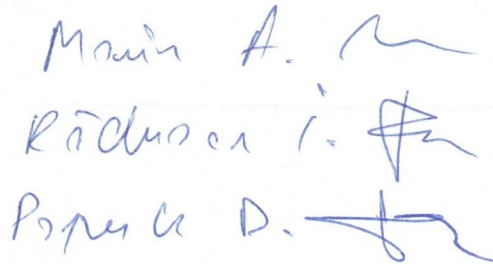 Marin A.
Răducan I.
Popescu D.